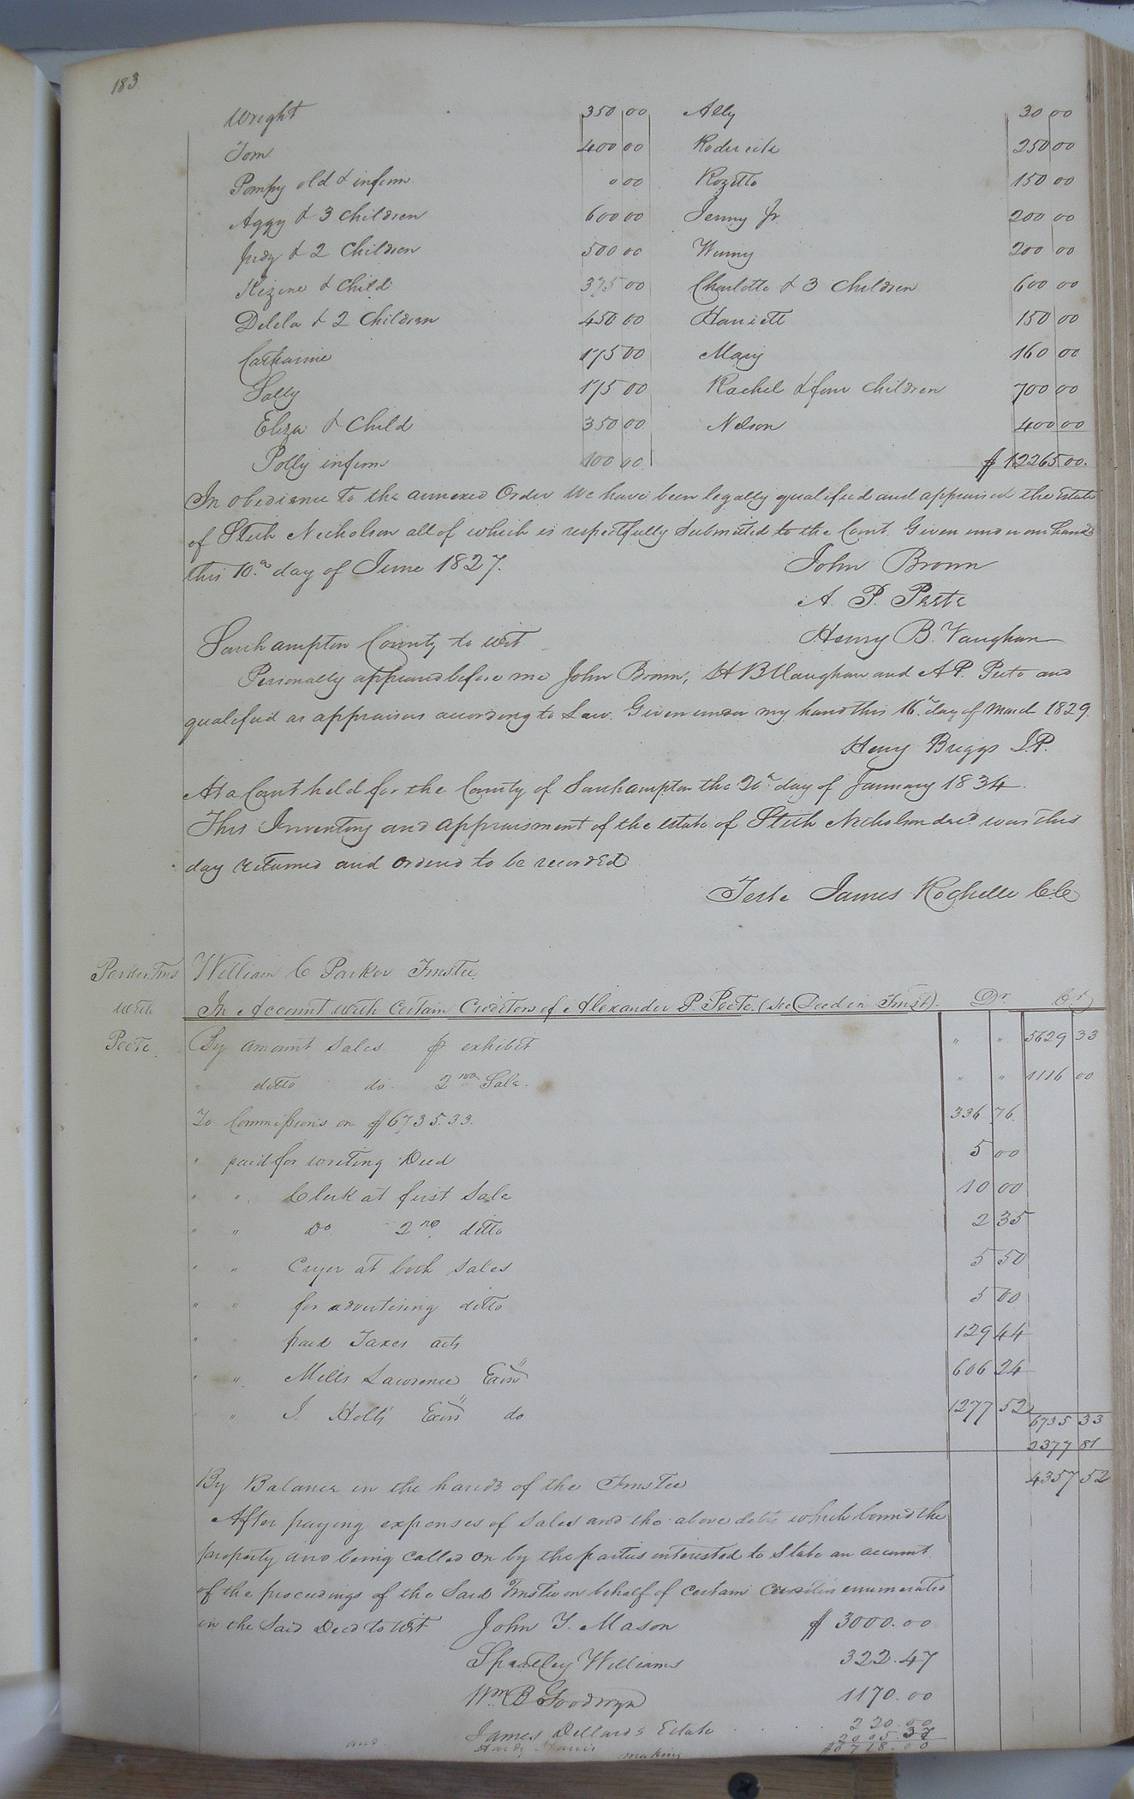 183
Wright 350 00 Ally 30 00
Tom 400 00 Roderick 250 00
Pompy old & infirm 0 00 Rozetta 150 00
Aggy & 3 Children 600 00 Jenny Jr 200 00
Judy & 2 Children 500 00 Winny 200 00
Kizine & Child 375 00 Charlotte & 3 Children 600 00
Delila & 2 Children 450 00 Harriett 150 00
Catharine 175 00 Mary 160 00
Sally 175 00 Rachel & four Children 700 00
Eliza & Child 350 00 Nelson 400 00
Polly infirm 100 00 $ 12265.00.
In obedience to the annexed Order We have been legally qualified and appraised the Estate
of Steth Nicholson all of which is respectfully Submitted to the Court. Given under our hands
this 10.th day of June 1827. John Brown
A. P. Peete
Southampton County to wit Henry B. Vaughan
Personally appeared before me John Brown, H B Vaughan and A P. Peete and
qualified as appraisers according to Law. Given under my hand this 16.th day of March 1829.
Henry Briggs J.P.
At a Court held for the County of Southampton the 20th day of January 1834
This Inventory and appraisment of the estate of Steth Nicholson decd was this
day returned and Ordered to be recorded
Teste James Rochelle C.C
Parker Trus William C Parker Trustee
with In Account with Certain Creditors of Alexander P Peete. (See Deed in Trust). Dr Cr
Peete. By amount Sales $ exhibit " " 5629 33
" ditto do. 2nd Sale. " " 1116 00
To Commissions on $6735.33. 336 76
" paid for writing Deed 5 00
" " Clerk at first Sale 10 00
" " Do 2nd ditto 2 35
" " Cryer at both Sales 5 50
" " for advertising ditto 5 00
" paid Taxes 129 44
" " Mills Lawrence Exon 606 24
" J. Holts Exon do 1277 52
6735 33
2377 81
By Balance in the hands of the Trustee 4357 52
After paying expenses of Sales and the above debts which bound the
property and being called on by the parties interested to State an account
of the proceedings of the Said Trustee on behalf of certain Creditors enumerated
in the Said Deed to wit John Y. Mason $ 3000.00
Spratley Williams 322.47
Wm B Goodwyn 1170.00
James Dillard's Estate 220.00
and making